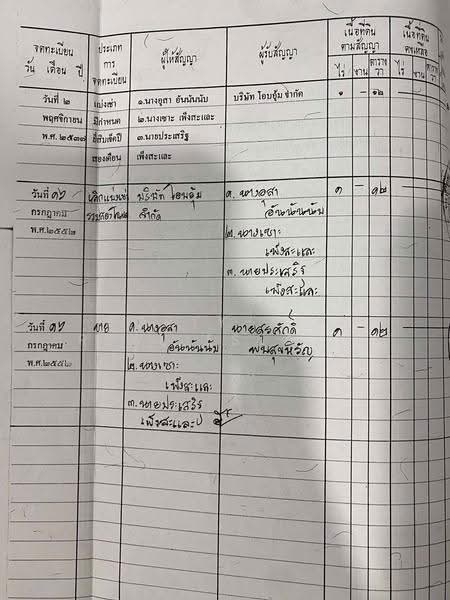 จดทะเบียน
วัน เดือน ปี
ประเภท
การ
จดทะเบียน
ผู้ให้สัญญา
ผู้รับสัญญา
เนื้อที่ดิน
ตามสัญญา
ไร่ งาน ตารางวา
เนื้อที่ดิน
คงเหลือ
ไร่ งาน ตารางวา
วันที่ ๒ แบ่งเช่า ๑.นางอุสา อันนันนับ บริษัท โอบอุ้ม จำกัด ๑ – ๑๒
พฤศจิกายน มีกำหนด ๒.นางเซาะ เพ็งสะและ
พ.ศ. ๒๕๓๗ ยี่สิบเจ็ดปี ๓.นายประเสริฐ
สองเดือน เพ็งสะและ
วันที่ ๑๖ เลิกแบ่งเช่า บริษัท โอบอุ้ม ๑. นางอุสา ๑ – ๑๒
กรกฎาคม จำกัด อันนันนับ
พ.ศ.๒๕๕๒ ๒. นางเซาะ
เพ็งสะและ
๓. นายประเสริฐ
เพ็งสะและ
วันที่ ๑๖ ขาย ๑. นางอุสา นายสุรศักดิ์ ๑ – ๑๒
กรกฎาคม อันนันนับ
พ.ศ.๒๕๕๒ ๒. นางเซาะ
เพ็งสะและ
๓. นายประเสริฐ
เพ็งสะและ